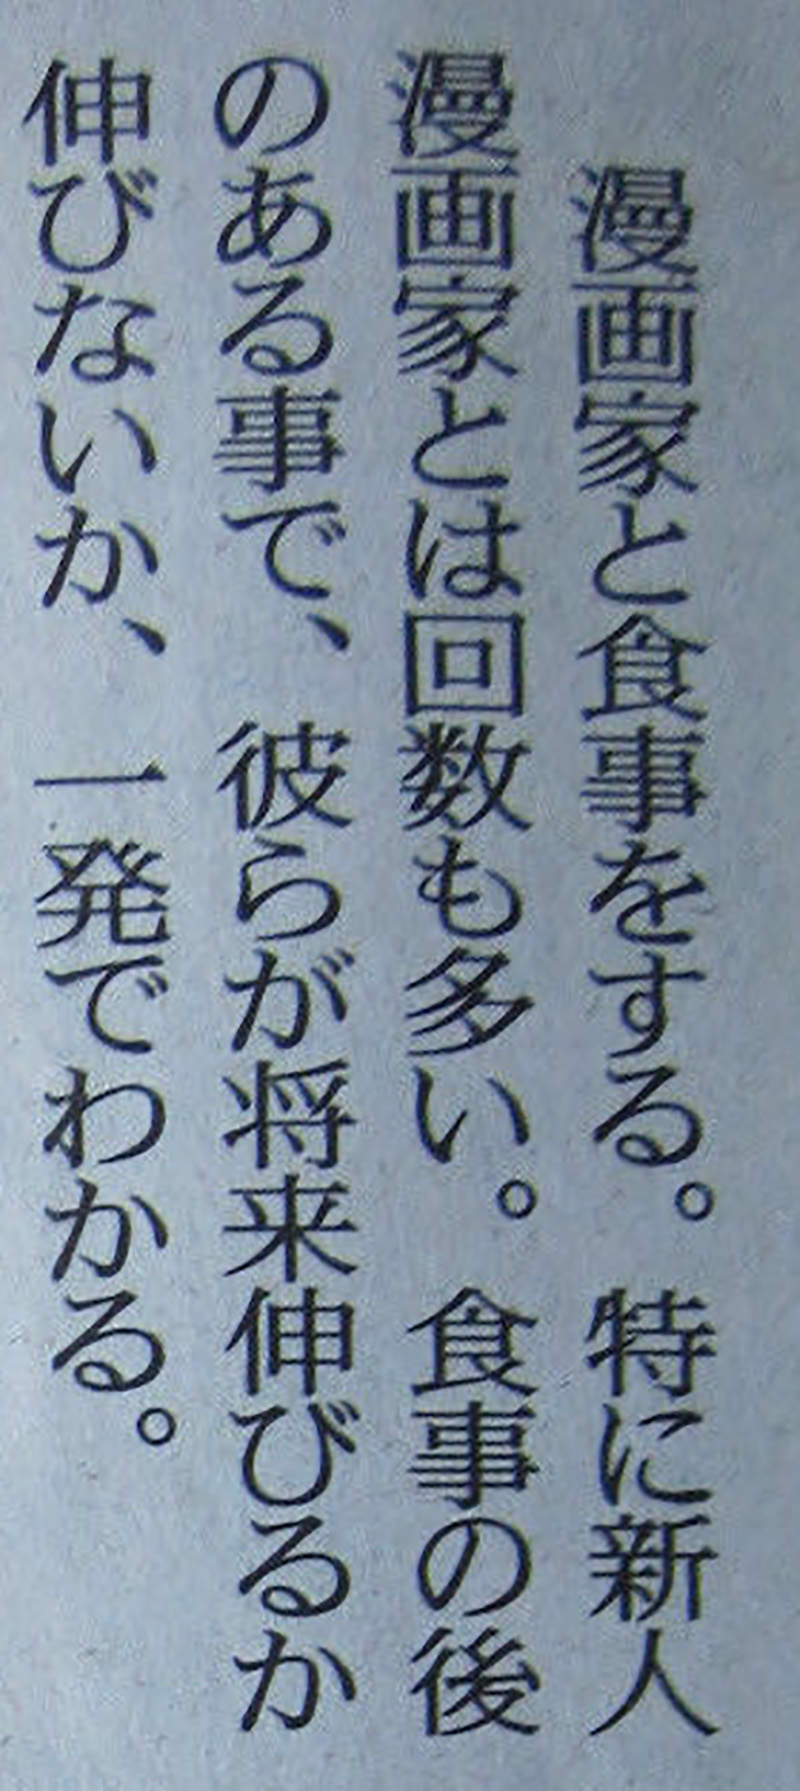 漫画家と食事をする。特に新人
漫画家とは回数も多い。食事の後
のある事で、彼らが将来伸びるか
伸びないか、一発でわかる。